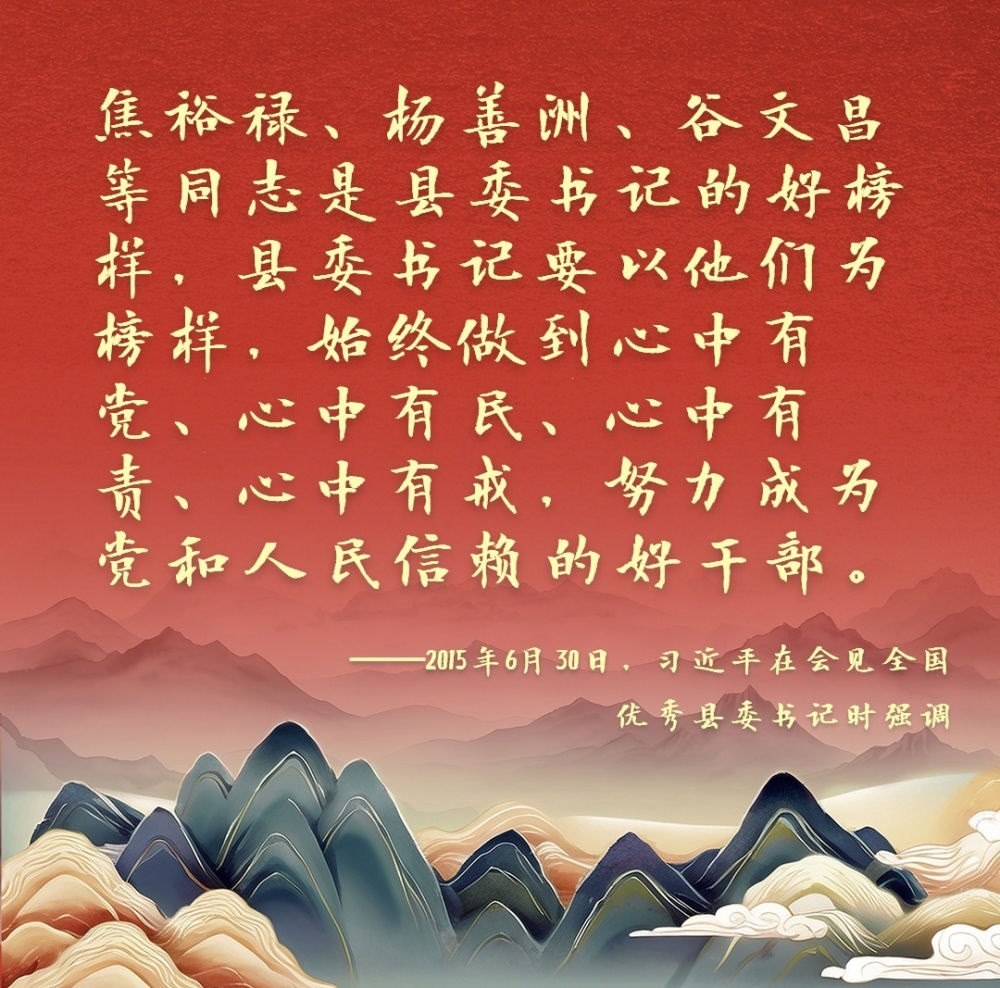 焦裕禄、杨善洲、谷文昌
等同志是县委书记的好榜
样，县委书记要以他们为
榜样，始终做到心中有
党、心中有民、心中有
责、心中有戒，努力成为
党和人民信赖的好干部。
——2015年6月30日，习近平在会见全国
优秀县委书记时强调